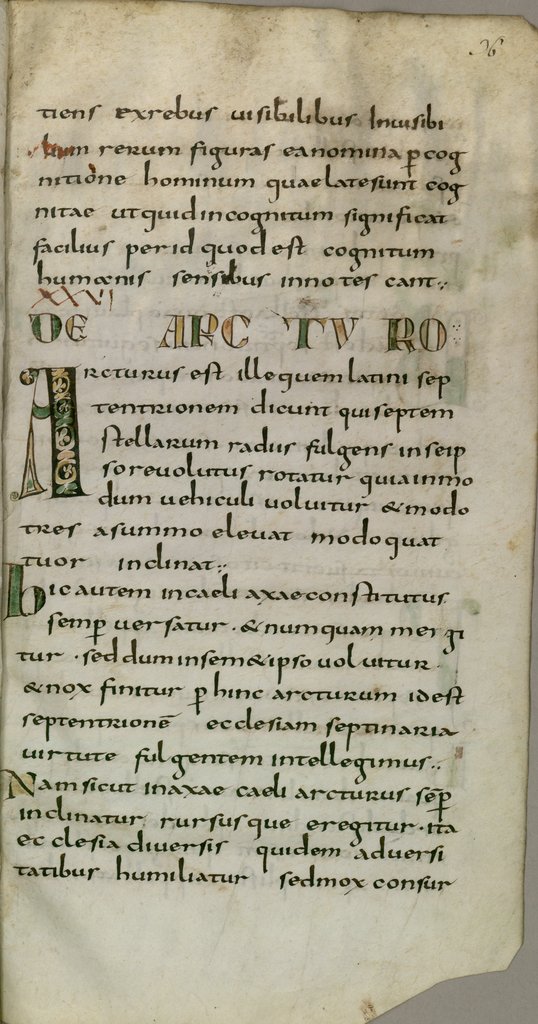 36
tiens exrebus uisibilibus Inuisibi
lium rerum figuras eanomina p̄ cog
nitione hominum quaelatesunt cog
nitae utquidincognitum significat
facilius perid quodest cognitum
humanis sensibus innotescant
XXVI
DE ARCTVRO
Arcturus est illequem latini sep
tentrionem dicunt quiseptem
stellarum radiis fulgens inseip
sorevolutus rotatur quiainmo
dum uehiculi uoluitur & modo
tres asummo eleuat modoquat
tuor inclinat
hic autem incaeli axaeconstitutus
semp̄ uersatur · & numquam mergi
tur · sed duminsem&ipso uoluitur ·
& nox finitur p̄ hinc arcturum idest
septentrionē ecclesiam septinaria
uirtute fulgentem intellegimus
Nam sicut inaxae caeli arcturus sēp̄
inclinatur rursusque eregitur · ita
ecclesia diuersis quidem aduersi
tatibus humiliatur sedmox consur